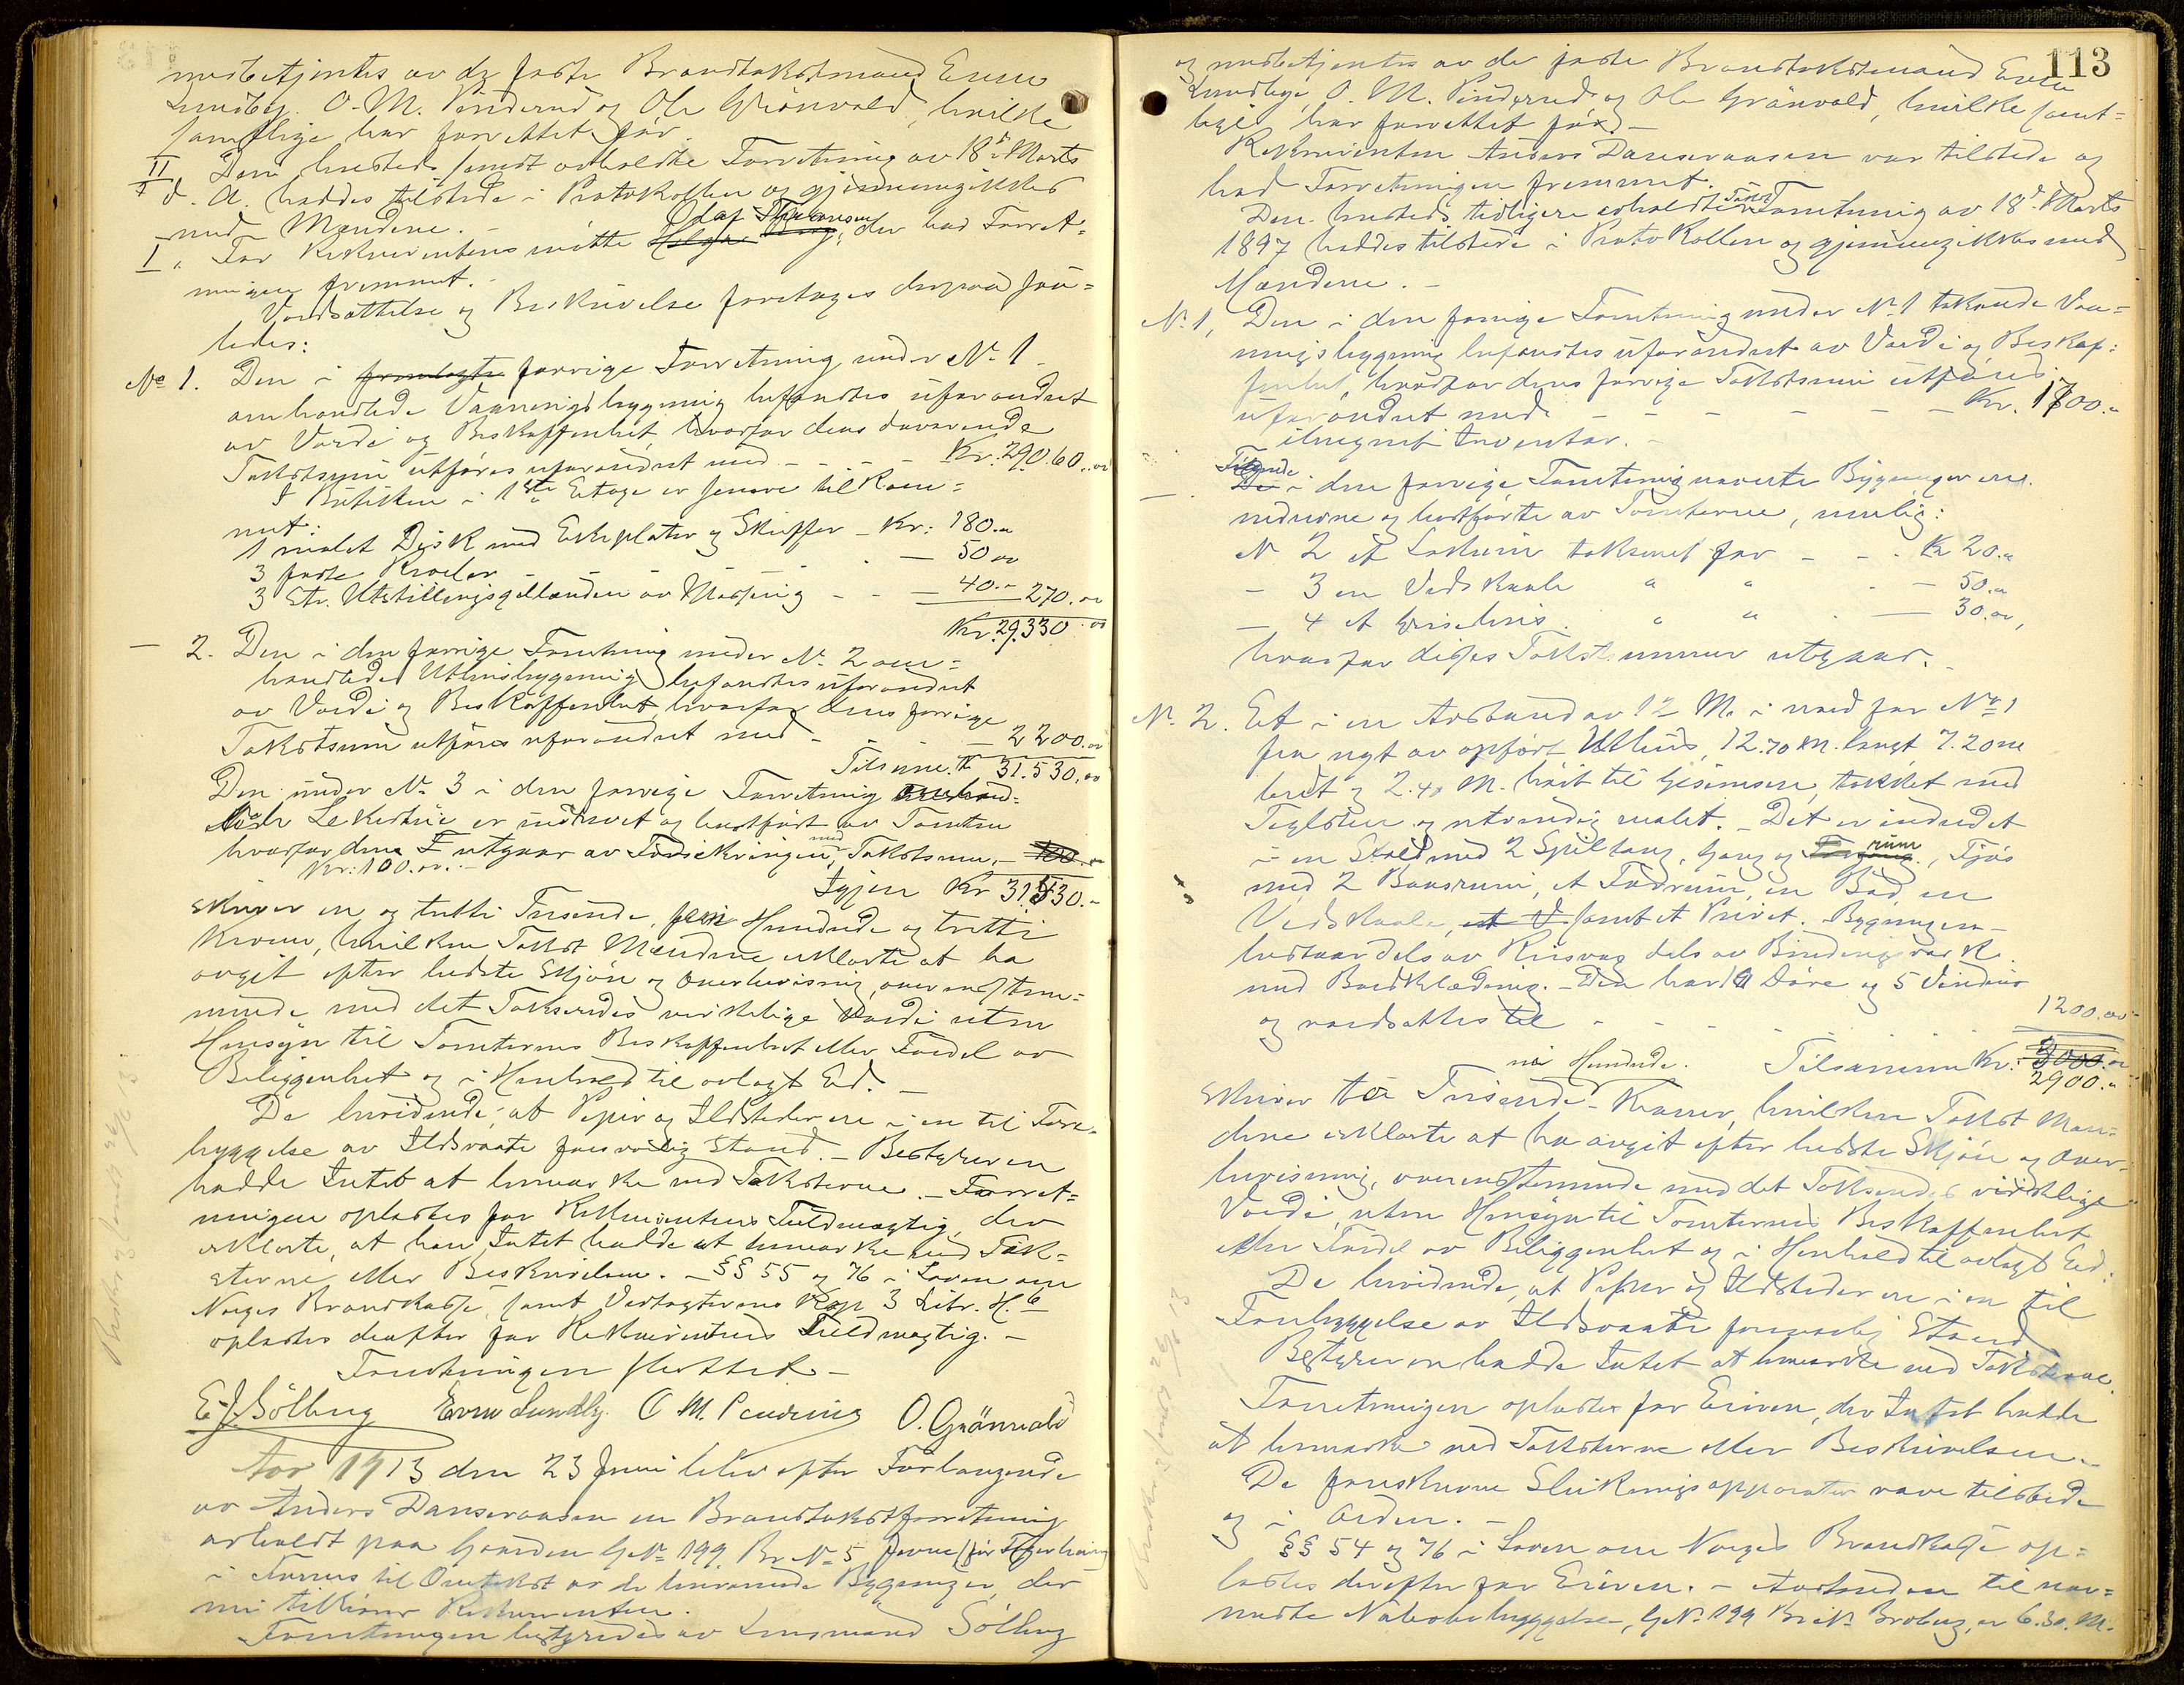 medbetjentes av de faste Brandtakstmænd Even
Lundby, O. M. Pinderud og Ole Grønvold, hvilke
samtlige har forrettet før.
II/ Den hersteds sendt avholdte Forretning av 18de Marts
d. A. haddes tilstede i Protokollen og gjennemgikkes
med Mændene. –
I. For Rekvirentens møtte Holger Berg, Olaf Thoresen der bad Forret=
ningen fremmet.
Værdsættelse og Beskrivelse foretages derpaa saa=
ledes:
No 1. Den i fremlagte forrige Forretning under No 1
omhandlede Vaaningsbygning befandtes uforandret
av Værdi og Beskaffenhet, hvorfor dens daværende
Takstsum utføres uforandret med – – – – Kr. 29.060.00
I Butikken i 1ste Etage er senere tilkom=
met:
1 malet Disk med Ekeplater og Skuffer – Kr: 180.00
3 faste Reoler – – – – 50.00
3 Stk. Utstillingsgellænder av Messing – – 40.00 270.00
Kr. 29.330.00
– 2. Den i den forrige Forretning under No 2 om=
handlede Uthusbygning befandtes uforandret
av Værdi og Beskaffenhet, hvorfor dens forrige
Takstsum utføres uforandret med – – – 2200.00
Tilsam. Kr 31.530.00
Den under No 3 i den forrige Forretning omhand=
lede Lekestue er nedrevet og bortført av Tomten
hvorfor dens F utgaar av Forsikringen, med Takstsum. – 100.–
Kr: 100.00. –
Igjen Kr 31530.–
skriver en og tretti Tusende, fem Hundrede og tretti
Kroner, hvilken Takst Mændene erklærte at ha
avgit efter bedste Skjøn og Overbevisning, overensstem=
mende med det Takseredes virkelige Værdi uten
Hensyn til Tomternes Beskaffenhet eller Fordel av
Beliggenhet og i Henhold til avlagt Ed. –
De bevidnede, at Piper og Ildsteder ere i en til Fore=
byggelse av Ildsvaade forsvarlig Stand. – Bestyreren
hadde Intet at bemærke ved Taksterne. – Forret=
ningen oplæstes for Rekvirentens Fuldmægtig, der
erklærte, at han Intet hadde at bemærke ved Tak=
sterne eller Beskrivelsen. – §§ 55 og 76 i Loven om
Norges Brandkasse, samt Vedtægternes Kap 3 Litr. H. 6
oplæstes derefter for Rekvirentens Fuldmægtig. –
Forretningen sluttet –
E. J. Sølberg Even Lundby. O M. Pinderud O. Grönvold
Aar 1913 den 23 Juni blev efter Forlangende
av Anders Danseraasen en Brandtakstforretning
avholdt paa Gaarden GNo 199 Br No 5,
i Furnes til Omtakst av de henværende Bygninger, der
nu tilhører Rekvirenten.
Forretningen bestyredes av Lensmand Sølberg
113
og medbetjentes av de faste Brandtakstmænd Even
Lundby, O. M. Pinderud og Ole Grønvold, hvilke samt=
lige har forrettet før. –
Rekvirenten Anders Danseraasen var tilstede og
bad Forretningen fremmet.
Den hersteds tidligere avholdte Forretning av 18de Marts
1897 haddes tilstede i Protokollen og gjennemgikkes med
Mændene. –
No 1, Den i den forrige Forretning under No 1 takserede Vaa=
ningsbygning befandtes uforandret av Værdi og Beskaf=
fenhet, hvorfor dens forrige Takstsum utføres
uforandret med – – – – – – Kr. 1700.00
iberegnet Inventar. –
– De Følgende i den forrige Forretning nævnte Bygninger ere
nedrevne og bortførte av Tomterne, nemlig:
No 2 et taksert for – – – Kr 20.00
– 3 en Vedskaale " " – 50.00
– 4 et Grisehus. " " – 30.00,
hvorfor disses Takstsummer utgaar. –
No. 2. Et i en Avstand av 12 M. i nord for No 1
fra nyt av opført Uthus, 12.70 M. langt 7.20 M
bredt og 2.40 M. høit til Gesimsen, tækket med
Teglsten og utvendig malet. – Det er indredet
i en Stald med 2 Spiltaug, Gang og rum, Fjøs
med 2 Baasrum, et Fodrum, en Bod, en
Vedskaale, et V samt et Privet. Bygningen
bestaar dels av Reisverk dels av Bindingsverk
med Bordklædning. – Den har 10 Døre og 5 Vinduer
og værdsættes til – – – – – 1200.00
Tilsammen Kr. 3000.00
2900.00
skriver to Tusende ni Hundrede. Kroner, hvilken Takst Mæn=
dene erklærte at ha avgit efter bedste Skjøn og Over=
bevisning, overensstemmende med det Takseredes virkelige
Værdi, uten Hensyn til Tomternes Beskaffenhet
eller Fordel av Beliggenhet og i Henhold til avlagt Ed.
De bevidnede, at Piper og Ildsteder ere i en til
Forebyggelse av Ildsvaade forsvarlig Stand
Bestyreren hadde Intet at bemærke ved Taksterne.
Forretningen oplæstes for Eieren, der Intet hadde
at bemærke ved Taksterne eller Beskrivelsen. –
De foreskrevne Slukningsapparater vare tilstede
og i Orden. –
§§ 54 og 76 i Loven om Norges Brandkasse op=
læstes derefter for Eieren. – Avstanden til nær=
meste Nabobebyggelse, GNo 199 Br No Broberg, er 6.30 M.